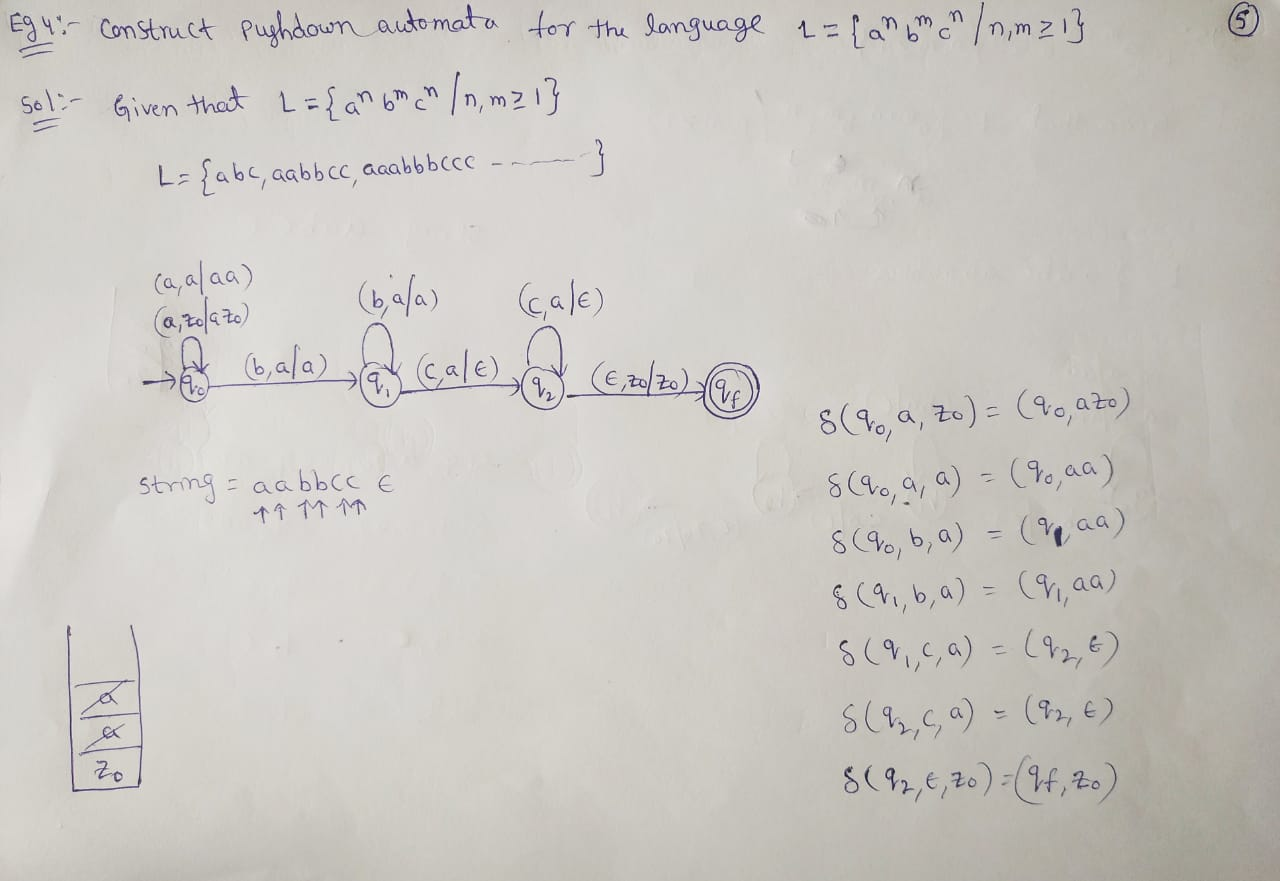 Eg 4:- Construct Pushdown automata for the language L = {aⁿ bᵐ cⁿ / n,m ≥ 1}
5
Sol:- Given that L = {aⁿ bᵐ cⁿ / n, m ≥ 1}
L = {abc, aabbcc, aaabbbccc ------ }
(a,a/aa)
(a,z₀/az₀)
(b,a/a)
(c,a/ε)
(b,a/a)
(c,a/ε)
(ε,z₀/z₀)
q₀
q₁
q₂
qf
string = aabbcc ε
↑↑ ↑↑ ↑↑
a
a
z₀
δ(q₀, a, z₀) = (q₀, az₀)
δ(q₀, a, a) = (q₀, aa)
δ(q₀, b, a) = (q₁, aa)
δ(q₁, b, a) = (q₁, aa)
δ(q₁, c, a) = (q₂, ε)
δ(q₂, c, a) = (q₂, ε)
δ(q₂, ε, z₀) = (qf, z₀)